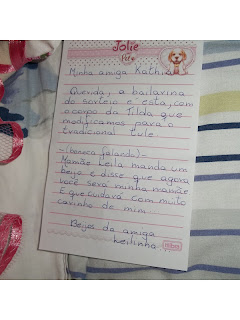 Jolie
Pet
Minha amiga Kathia
Querida, a bailarina
do sorteio e esta, com
o corpo da Tilda que
modificamos para o
tradicional tule.
-(boneca falando)-
Mamãe Leila manda um
beijo e disse que agora
você será minha mamãe
E que cuidará com muito
carinho de mim.
Beijos da amiga
Leilinha
tilibra